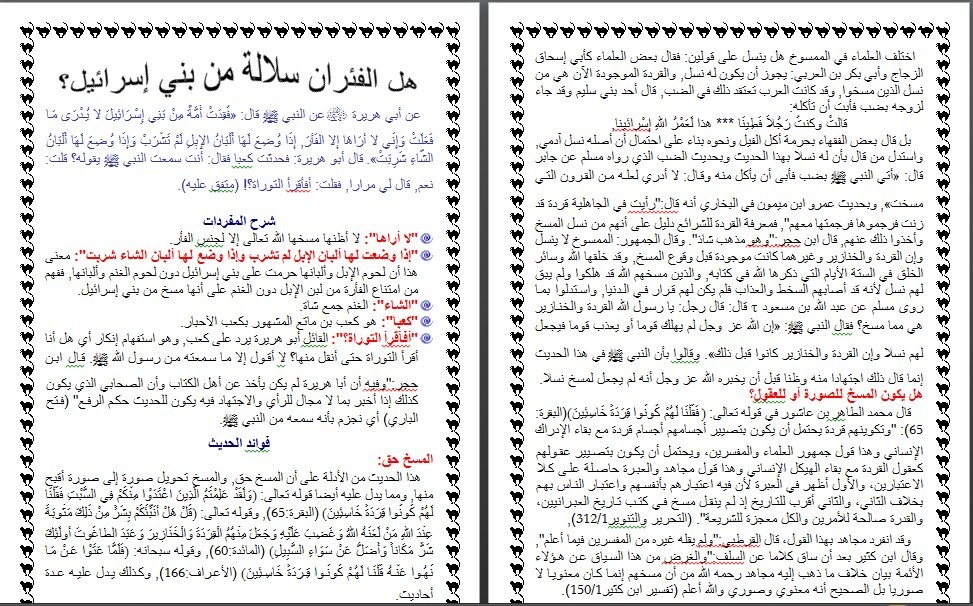 هل الفئران سلالة من بني إسرائيل؟
عن أبي هريرة ﷺ عن النبي ﷺ قال: «فُقِدَتْ أُمَّةٌ مِنْ بَنِي إِسْرَائِيلَ لَا يُدْرَى مَا
فَعَلَتْ وَإِنِّي لَا أَرَاهَا إِلا الفَأر, إِذَا وُضِعَ لَهَا أَلْبَانُ الإِبِلِ لَمْ تَشْرَبْ وَإِذَا وُضِعَ لَهَا أَلْبَانُ
الشَّاءِ شَرِبَتْ». قال أبو هريرة: فحدثت كعبا فقال: أنت سمعت النبي ﷺ يقوله؟ قلت:
نعم, قال لي مرارا, فقلت: أفأقرأ التوراة؟! (متفق عليه).
شرح المفردات
"لا أراها": لا أظنها مسخها الله تعالى إلا لجنس الفأر.
"إذا وضعت لها ألبان الإبل لم تشرب وإذا وضع لها ألبان الشاء شربت": معنى
هذا أن لحوم الإبل وألبانها حرمت على بني إسرائيل دون لحوم الغنم وألبانها, ففهم
من امتناع الفأرة من لبن الإبل دون الغنم على أنها مسخ من بني إسرائيل.
"الشاء": الغنم جمع شاة.
"كعبا": هو كعب بن ماتع المشهور بكعب الأحبار.
"أفأقرأ التوراة؟": القائل أبو هريرة يرد على كعب, وهو استفهام إنكار أي هل أنا
أقرأ التوراة حتى أنقل منها؟ لا أقول إلا ما سمعته من رسول الله ﷺ. قال ابن
حجر:"وفيه أن أبا هريرة لم يكن يأخذ عن أهل الكتاب وأن الصحابي الذي يكون
كذلك إذا أخبر بما لا مجال للرأي والاجتهاد فيه يكون للحديث حكم الرفع" (فتح
الباري) أي نجزم بأنه سمعه من النبي ﷺ.
فوائد الحديث
المسخ حق:
هذا الحديث من الأدلة على أن المسخ حق, والمسخ تحويل صورة إلى صورة أقبح
منها, ومما يدل عليه أيضا قوله تعالى: (وَلَقَدْ عَلِمْتُمُ الَّذِينَ اعْتَدَوْا مِنْكُمْ فِي السَّبْتِ فَقُلْنَا
لَهُمْ كُونُوا قِرَدَةً خَاسِئِينَ) (البقرة:65), وقوله تعالى: (قُلْ هَلْ أُنَبِّئُكُمْ بِشَرٍّ مِنْ ذَلِكَ مَثُوبَةً
عِنْدَ اللَّهِ مَنْ لَعَنَهُ اللَّهُ وَغَضِبَ عَلَيْهِ وَجَعَلَ مِنْهُمُ الْقِرَدَةَ وَالْخَنَازِيرَ وَعَبَدَ الطَّاغُوتَ أُولَئِكَ
شَرٌّ مَكَاناً وَأَضَلُّ عَنْ سَوَاءِ السَّبِيلِ) (المائدة:60), وقوله سبحانه: (فَلَمَّا عَتَوْا عَنْ مَا
نُهُوا عَنْهُ قُلْنَا لَهُمْ كُونُوا قِرَدَةً خَاسِئِينَ) (الأعراف:166), وكذلك يدل عليه عدة
أحاديث.
اختلف العلماء في الممسوخ هل ينسل على قولين: فقال بعض العلماء كأبي إسحاق
الزجاج وأبي بكر بن العربي: يجوز أن يكون له نسل, والقردة الموجودة الآن هي من
نسل الذين مسخوا, وقد كانت العرب تعتقد ذلك في الضب, قال أحد بني سليم وقد جاء
لزوجه بضب فأبت أن تأكله:
قالتْ وكنتُ رَجُلاً فَطِينًا *** هذا لَعَمْرُ اللهِ إسْرائِينا
بل قال بعض الفقهاء بحرمة أكل الفيل ونحوه بناء على احتمال أن أصله نسل آدمي,
واستدل من قال بأن له نسلا بهذا الحديث وبحديث الضب الذي رواه مسلم عن جابر
قال: «أتي النبي ﷺ بضب فأبى أن يأكل منه وقال: لا أدري لعله من القرون التي
مسخت», وبحديث عمرو ابن ميمون في البخاري أنه قال:"رأيت في الجاهلية قردة قد
زنت فرجموها فرجمتها معهم", فمعرفة القردة للشرائع دليل على أنهم من نسل المسخ
وأخذوا ذلك عنهم, قال ابن حجر:"وهو مذهب شاذ". وقال الجمهور: الممسوخ لا ينسل
وإن القردة والخنازير وغيرهما كانت موجودة قبل وقوع المسخ, وقد خلقها الله وسائر
الخلق في الستة الأيام التي ذكرها الله في كتابه, والذين مسخهم الله قد هلكوا ولم يبق
لهم نسل لأنه قد أصابهم السخط والعذاب فلم يكن لهم قرار في الدنيا, واستدلوا بما
روى مسلم عن عبد الله بن مسعود τ قال: قال رجل: يا رسول الله القردة والخنازير
هي مما مسخ؟ فقال النبي ﷺ: «إن الله عز وجل لم يهلك قوما أو يعذب قوما فيجعل
لهم نسلا وإن القردة والخنازير كانوا قبل ذلك». وقالوا بأن النبي ﷺ في هذا الحديث
إنما قال ذلك اجتهادا منه وظنا قبل أن يخبره الله عز وجل أنه لم يجعل لمسخ نسلا.
هل يكون المسخ للصورة أو للعقول؟
قال محمد الطاهر بن عاشور في قوله تعالى: (فَقُلْنَا لَهُمْ كُونُوا قِرَدَةً خَاسِئِينَ)(البقرة:
65): "وتكوينهم قردة يحتمل أن يكون بتصيير أجسامهم أجسام قردة مع بقاء الإدراك
الإنساني وهذا قول جمهور العلماء والمفسرين, ويحتمل أن يكون بتصيير عقولهم
كعقول القردة مع بقاء الهيكل الإنساني وهذا قول مجاهد والعبرة حاصلة على كلا
الاعتبارين, والأول أظهر في العبرة لأن فيه اعتبارهم بأنفسهم واعتبار الناس بهم
بخلاف الثاني, والثاني أقرب للتاريخ إذ لم ينقل مسخ في كتب تاريخ العبرانيين,
والقدرة صالحة للأمرين والكل معجزة للشريعة". (التحرير والتنوير312/1),
وقد انفرد مجاهد بهذا القول, قال القرطبي:"ولم يقله غيره من المفسرين فيما أعلم",
وقال ابن كثير بعد أن ساق كلاما عن السلف:"والغرض من هذا السياق عن هؤلاء
الأئمة بيان خلاف ما ذهب إليه مجاهد رحمه الله من أن مسخهم إنما كان معنويا لا
صوريا بل الصحيح أنه معنوي وصوري والله أعلم (تفسير ابن كثير150/1).